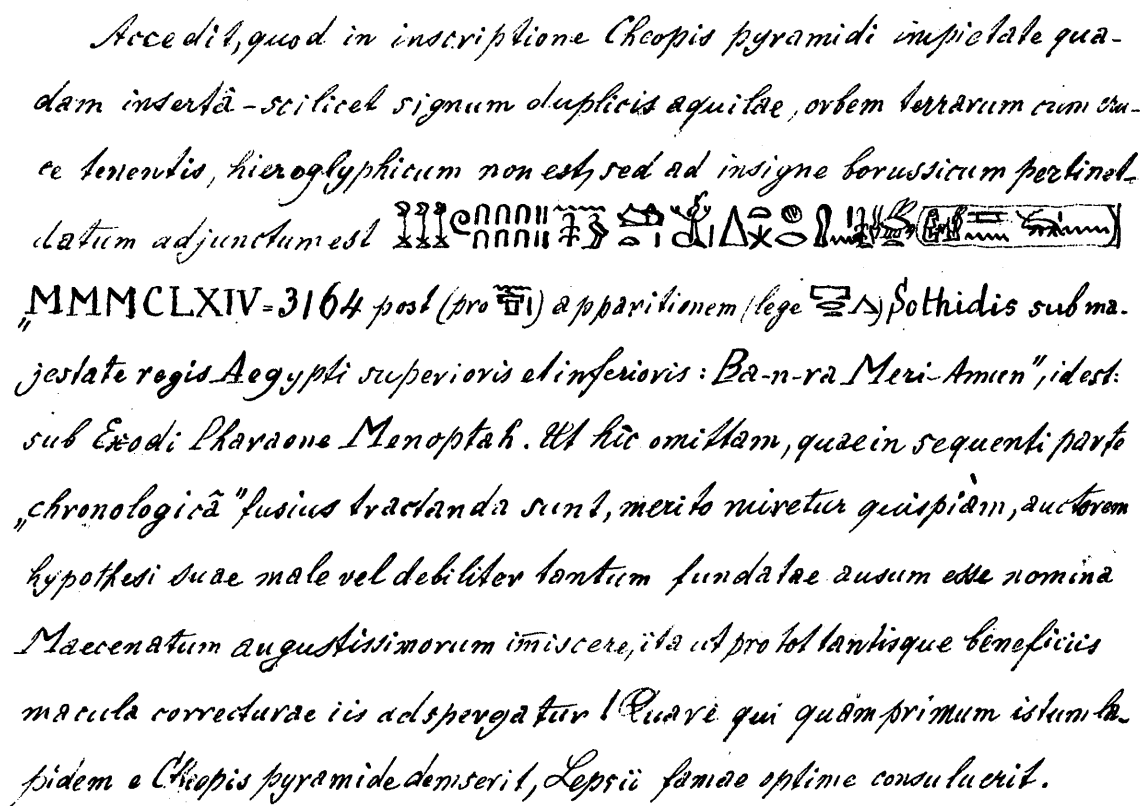 Accedit, quod in inscriptione Cheopis pyramidi impietate qua-
dam insertâ - scilicet signum duplicis aquilae, orbem terrarum cum cru-
ce tenentis, hieroglyphicum non est, sed ad insigne borussicum pertinet_
datum adjunctum est
„MMMCLXIV = 3164 post (pro ) apparitionem (lege ) Sothidis sub ma-
jestate regis Aegypti superioris et inferioris : Ba-n-ra Meri-Amun", id est:
sub Exodi Pharaone Menoptah. Ut hîc omittam, quae in sequenti parte
„chronologicâ" fusius tractanda sunt, merito miretur quispiàm, auctorem
hypothesi suae male vel debiliter tantum fundatae ausum esse nomina
Maecenatum augustissimorum im̄iscere, ita ut pro tot tantisque beneficiis
macula correcturae iis adspergatur! Quare qui quam primum istum la-
pidem e Cheopis pyramide demserit, Lepsii famae optime consuluerit.